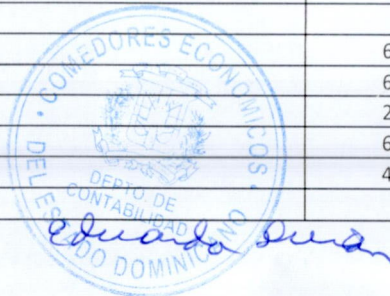 6
6
2
6
4
COMEDORES ECONOMICOS
DEL ESTADO DOMINICANO
DEPTO DE
CONTABILIDAD
Eduarda Durán